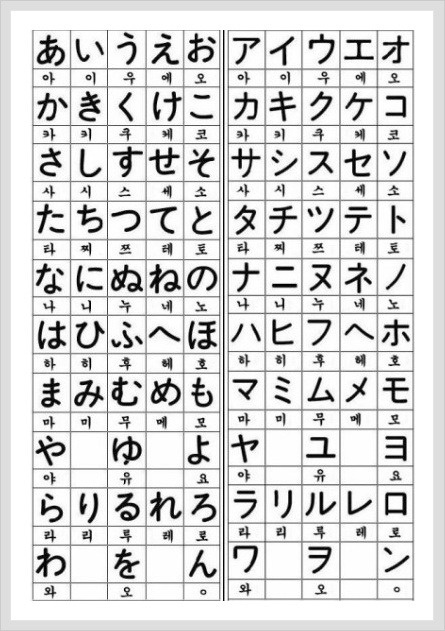 あ い う え お ア イ ウ エ オ
아 이 우 에 오 아 이 우 에 오
か き く け こ カ キ ク ケ コ
카 키 쿠 케 코 카 키 쿠 케 코
さ し す せ そ サ シ ス セ ソ
사 시 스 세 소 사 시 스 세 소
た ち つ て と タ チ ツ テ ト
타 찌 쯔 테 토 타 찌 쯔 테 토
な に ぬ ね の ナ ニ ヌ ネ ノ
나 니 누 네 노 나 니 누 네 노
は ひ ふ へ ほ ハ ヒ フ ヘ ホ
하 히 후 헤 호 하 히 후 헤 호
ま み む め も マ ミ ム メ モ
마 미 무 메 모 마 미 무 메 모
や ゆ よ ヤ ユ ヨ
야 유 요 야 유 요
ら り る れ ろ ラ リ ル レ ロ
라 리 루 레 로 라 리 루 레 로
わ を ん ワ ヲ ン
와 오 ㅇ 와 오 ㅇ